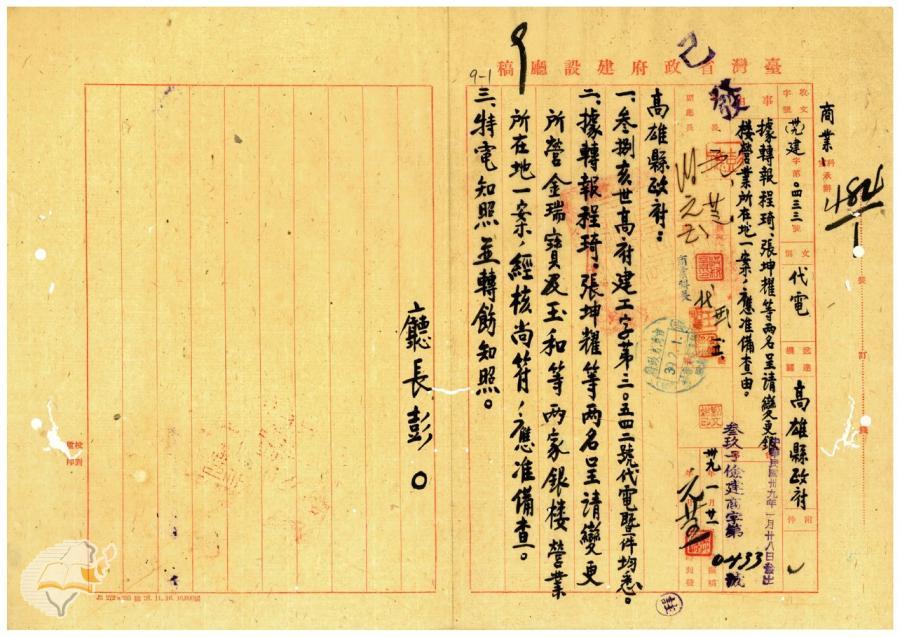 臺灣省政府建設廳稿
商業科承辦
484
1
9-1
已發
收文字號
莞建字第0四三三號
文別
代電
送達機關
高雄縣政府
附件
事由
據轉報程琦、張坤耀等兩名呈請變更銀
樓營業所在地一案,應准備查由。
中華民國卅九年一月廿八日發出
叁玖子儉建商字第
0433號
卅九年一月廿一
高雄縣政府:
一、叁捌亥世高府建工字第三0五四二號代電暨件均悉。
二、據轉報程琦、張坤耀等兩名呈請變更
所營金瑞寶及玉和等兩家銀樓營業
所在地一案,經核尚符,應准備查。
三、特電知照並轉飭知照。
廳長彭0